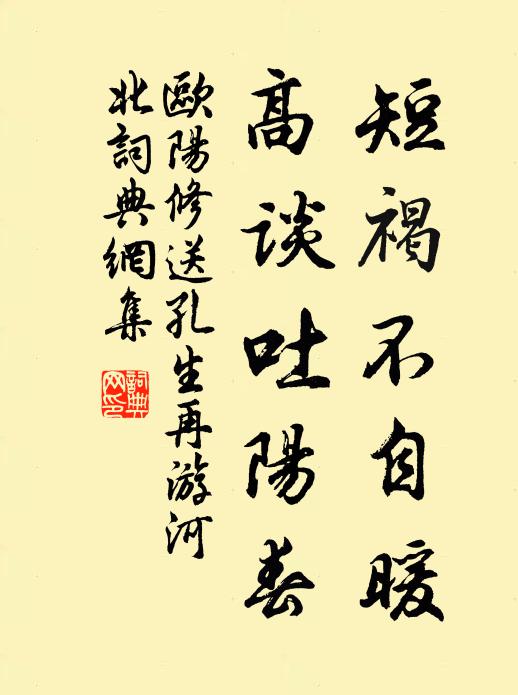 短褐不自暖
高談吐陽春
歐陽修送孔生再游河
北詞典網集
詞典
网印